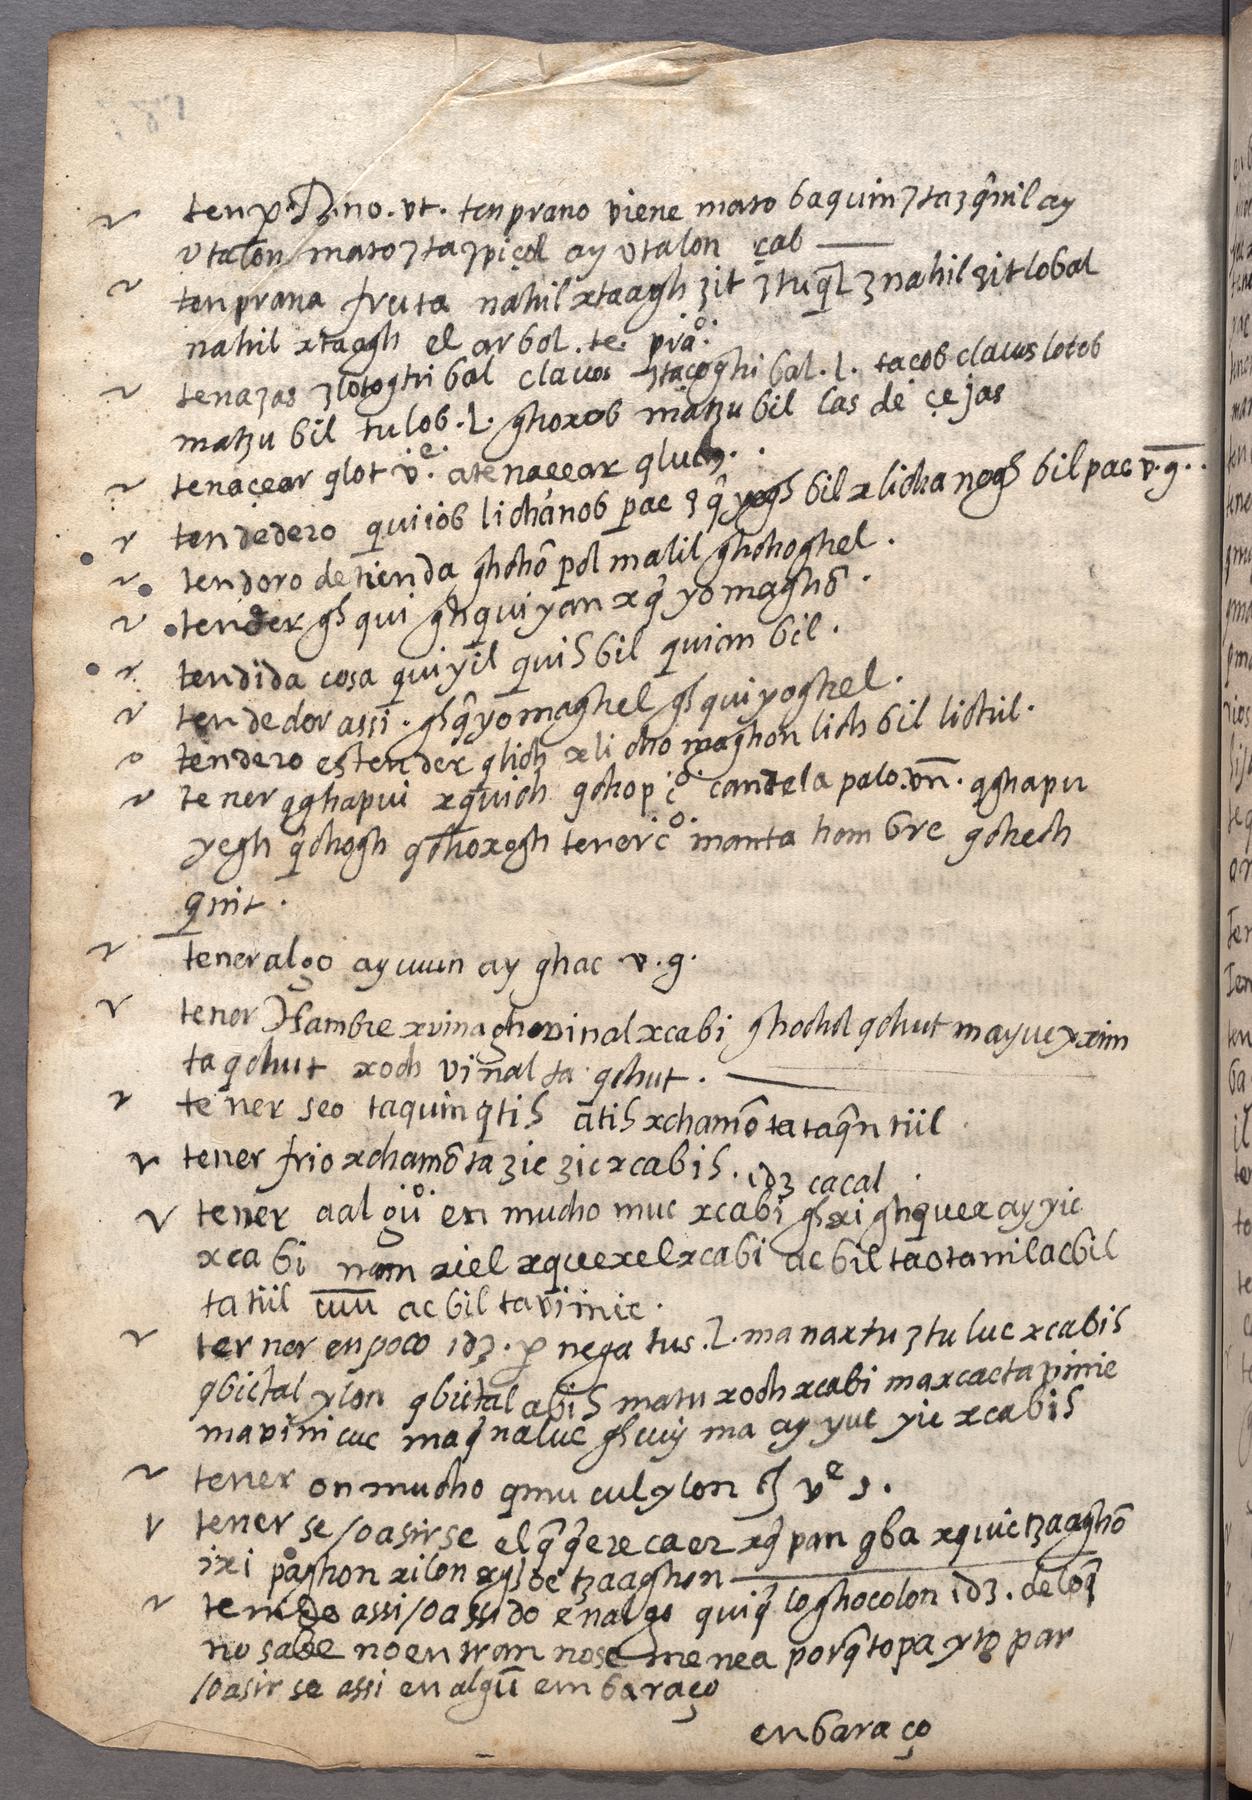 tenprano. vt. tenprano viene mato baquin ʒtaʒq̃nil ay
vtalon mato ʒtaʒpiçil ay vtalon çab
tenprana fruta nahil xtaagh ʒit ʒtuq̃l ʒnahil ʒit lobal
nahil xtaagh el arbol. te. prão.
tenaʒas ʒlotoghibal clauos ʒtacoghibal .l. tacob clauos lotob
matʒubil tulob .l. ghoxob matʒubil las de çejas
tenaçear qlot ve. atenacear
tendedero quiiob lichánob pac ʒq̃ yeghbil xlichanoghbil pac v.g.
tendoro de tienda ghchõ pol malil ghchoghel.
tender ghqui ghquiyan xq̃ yomaghõ.
tendida cosa quiyil quisbil quiambil.
tendedor assi. ghq̃yomaghel ghquiyoghel.
tendero estender qlich xlichomaghon lichbil lichil.
tener qghapui xquich gchop co candela palo. vñ. qghapui
yegh qchogh qchoxogh tener co manta hombre gchech
qnit.
tener algo ay cuun ay ghac v.g.
tener Hambre xvinagho vinal xcabi ghochol qchut mayuc yxim
ta qchut xoch vinal ta qchut.
tener seo taquin qtis ãtis xchamõ ta taq̃n tiil
tener frio xchamõ ta ʒic ʒic xcabis. idʒ cacal
tener a algũo en mucho muc xcabi ghxi ghquex ay yic
xcabi nom xiel xquexel xcabi acbil taotanil acbil
ta tiil cuu acbil ta vinic.
terner en poco idʒ. p negatus .l. manaxtu ʒtuluc xcabis
qbictal ylon qbictal abis matu xoch xcabi maxcacta pinic
mavinicuc maq̃naluc ghcuy ma ay yuc yic xcabis
tener on mucho qmucul ylon
tenerse /oasirse el q̃ q̃ere caer xq̃ pan gba xquic tʒaaghõ
ixi paghon xilon tʒaaghon
tenido assi /oassido enalgo quiq̃ loghocolon idʒ. deloq̃
no sale no entran nose menea porq̃ topa yto par
/oasirse assi en algũ embaraço
enbaraço